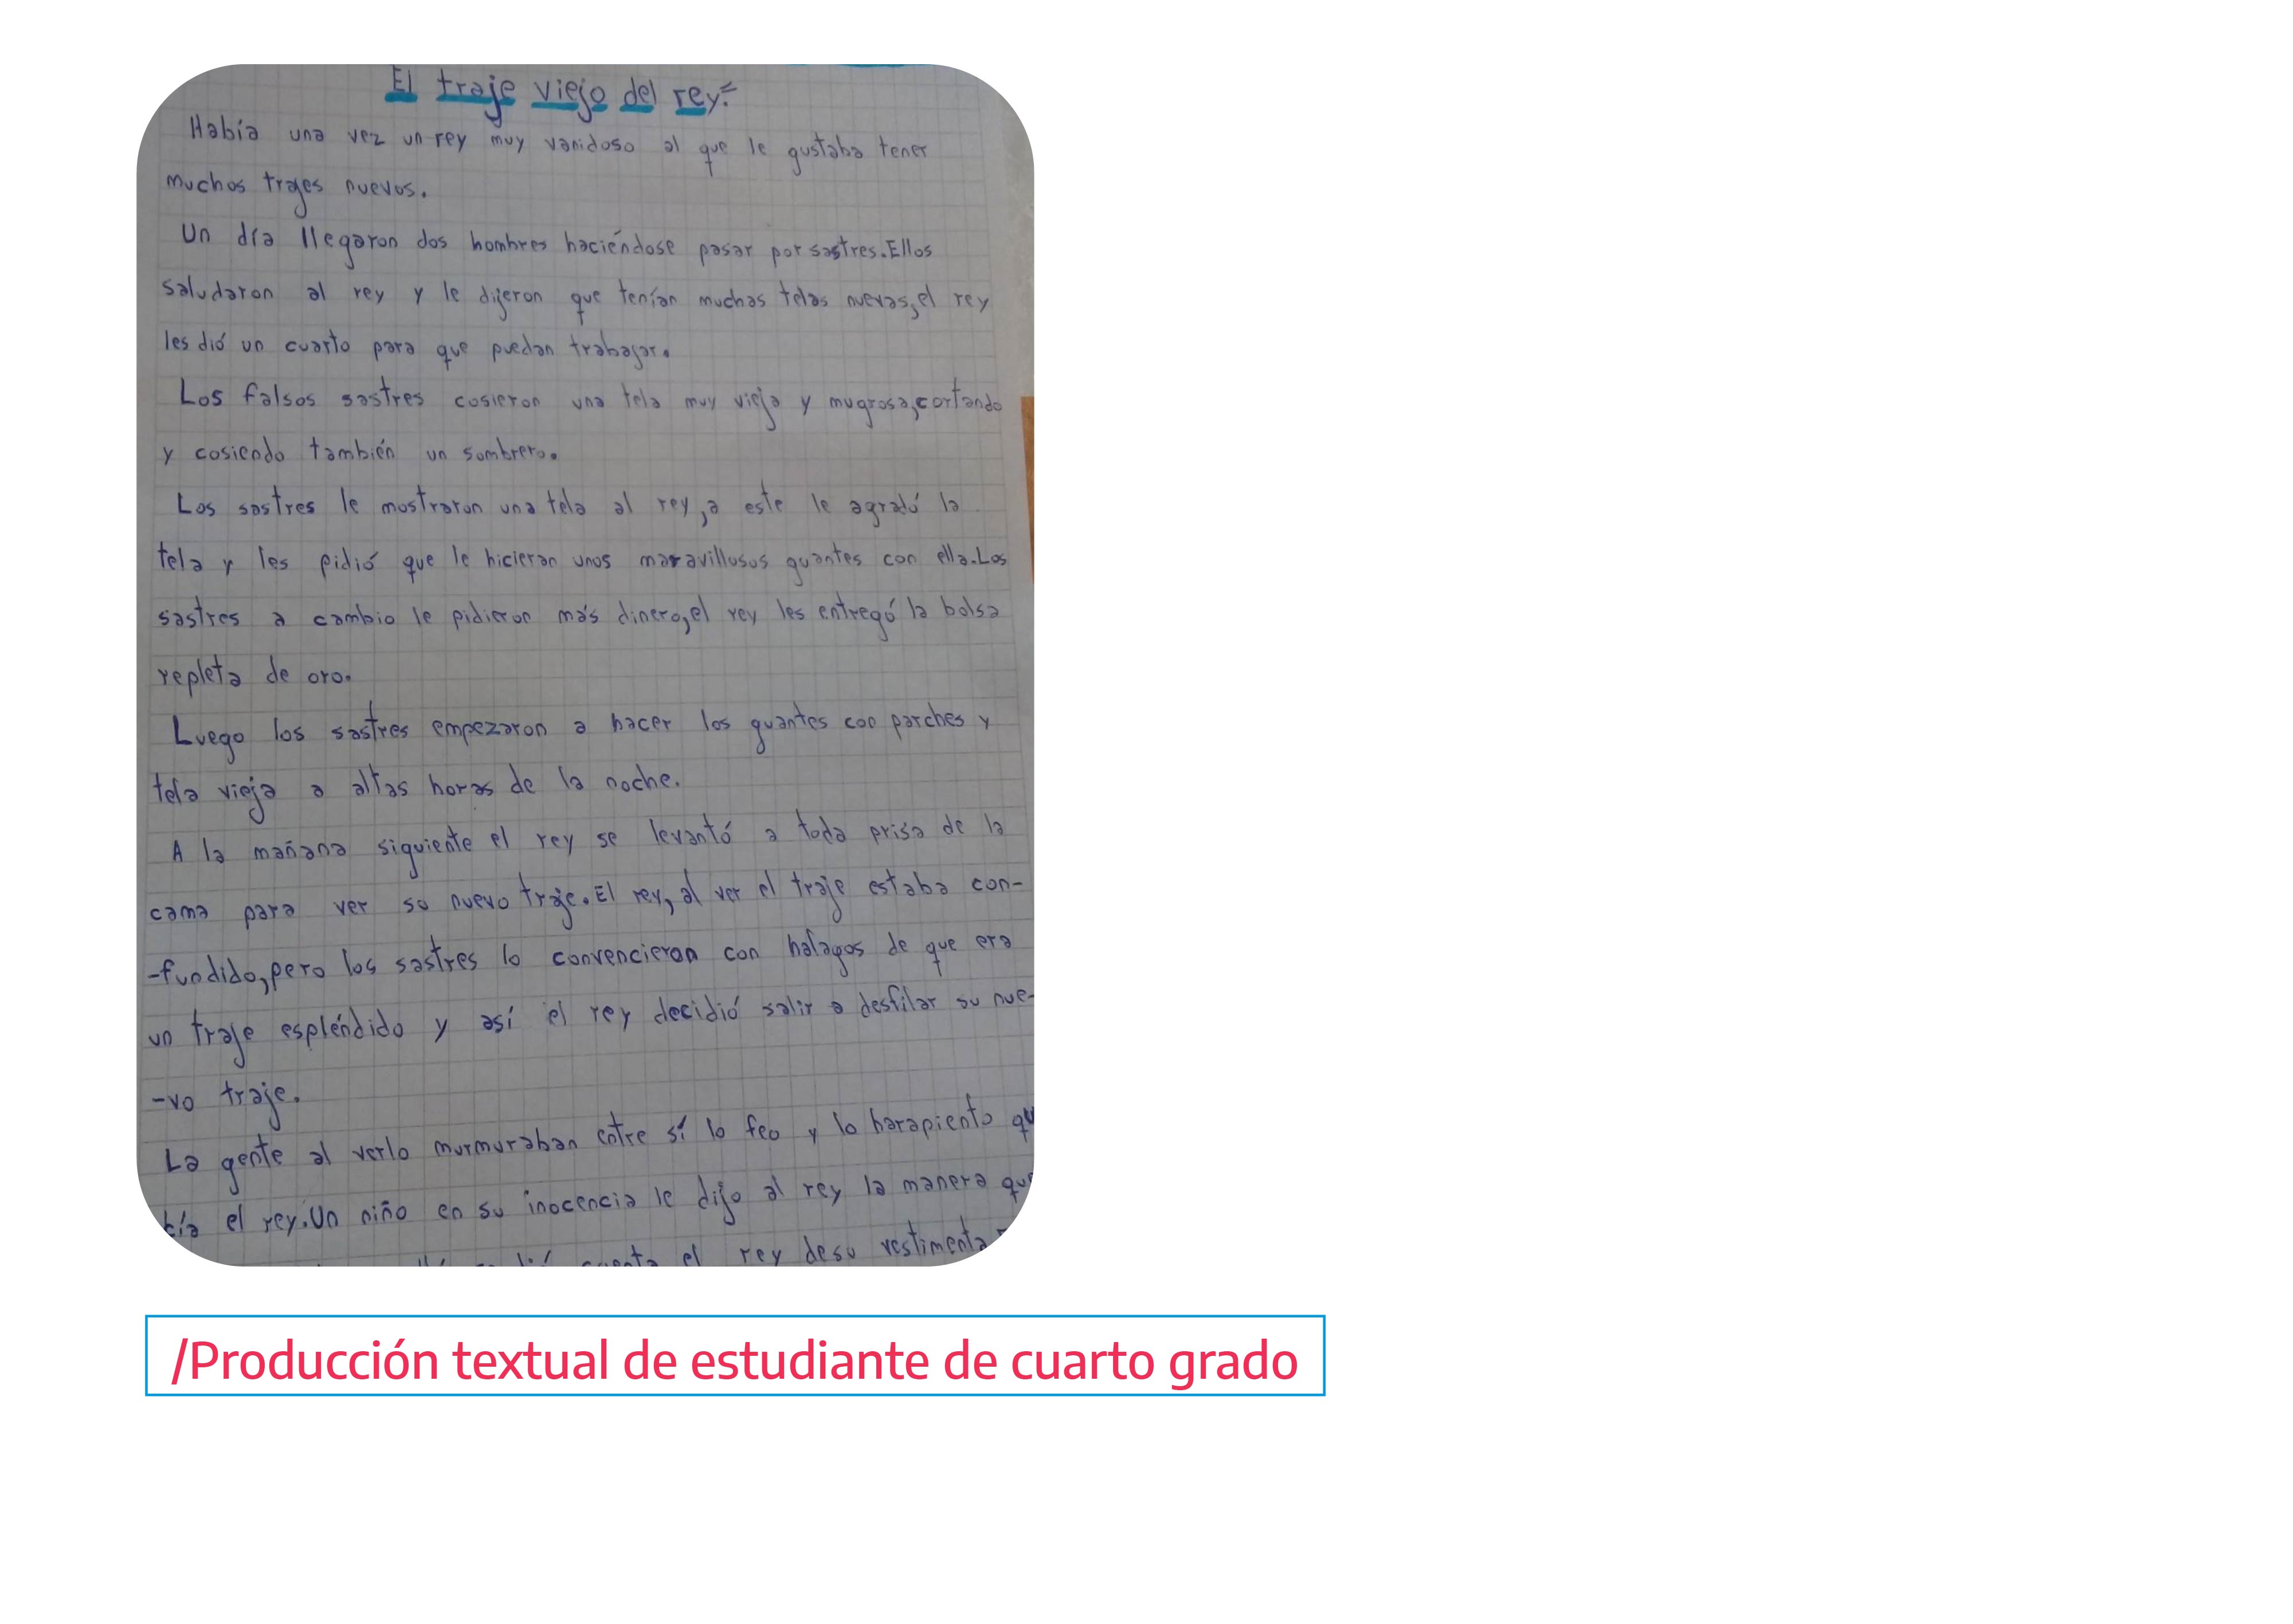 El traje viejo del rey:=
Había una vez un rey muy vanidoso al que le gustaba tener
muchos trajes nuevos.
Un día llegaron dos hombres haciéndose pasar por sastres.Ellos
saludaron al rey y le dijeron que tenían muchas telas nuevas,el rey
les dió un cuarto para que puedan trabajar.
Los falsos sastres cosieron una tela muy vieja y mugrosa,cortando
y cosiendo también un sombrero.
Los sastres le mostraron una tela al rey,a este le agradó la
tela y les pidió que le hicieran unos maravillosos guantes con ella.Los
sastres a cambio le pidieron más dinero,el rey les entregó la bolsa
repleta de oro.
Luego los sastres empezaron a hacer los guantes con parches y
tela vieja a altas horas de la noche.
A la mañana siguiente el rey se levantó a toda prisa de la
cama para ver su nuevo traje.El rey, al ver el traje estaba con-
-fundido,pero los sastres lo convencieron con halagos de que era
un traje espléndido y así el rey decidió salir a desfilar su nue-
-vo traje.
La gente al verlo murmuraban entre sí lo feo y lo harapiento
el rey.Un niño en su inocencia le dijo al rey la manera que
cuenta el rey de su vestimenta
/Producción textual de estudiante de cuarto grado